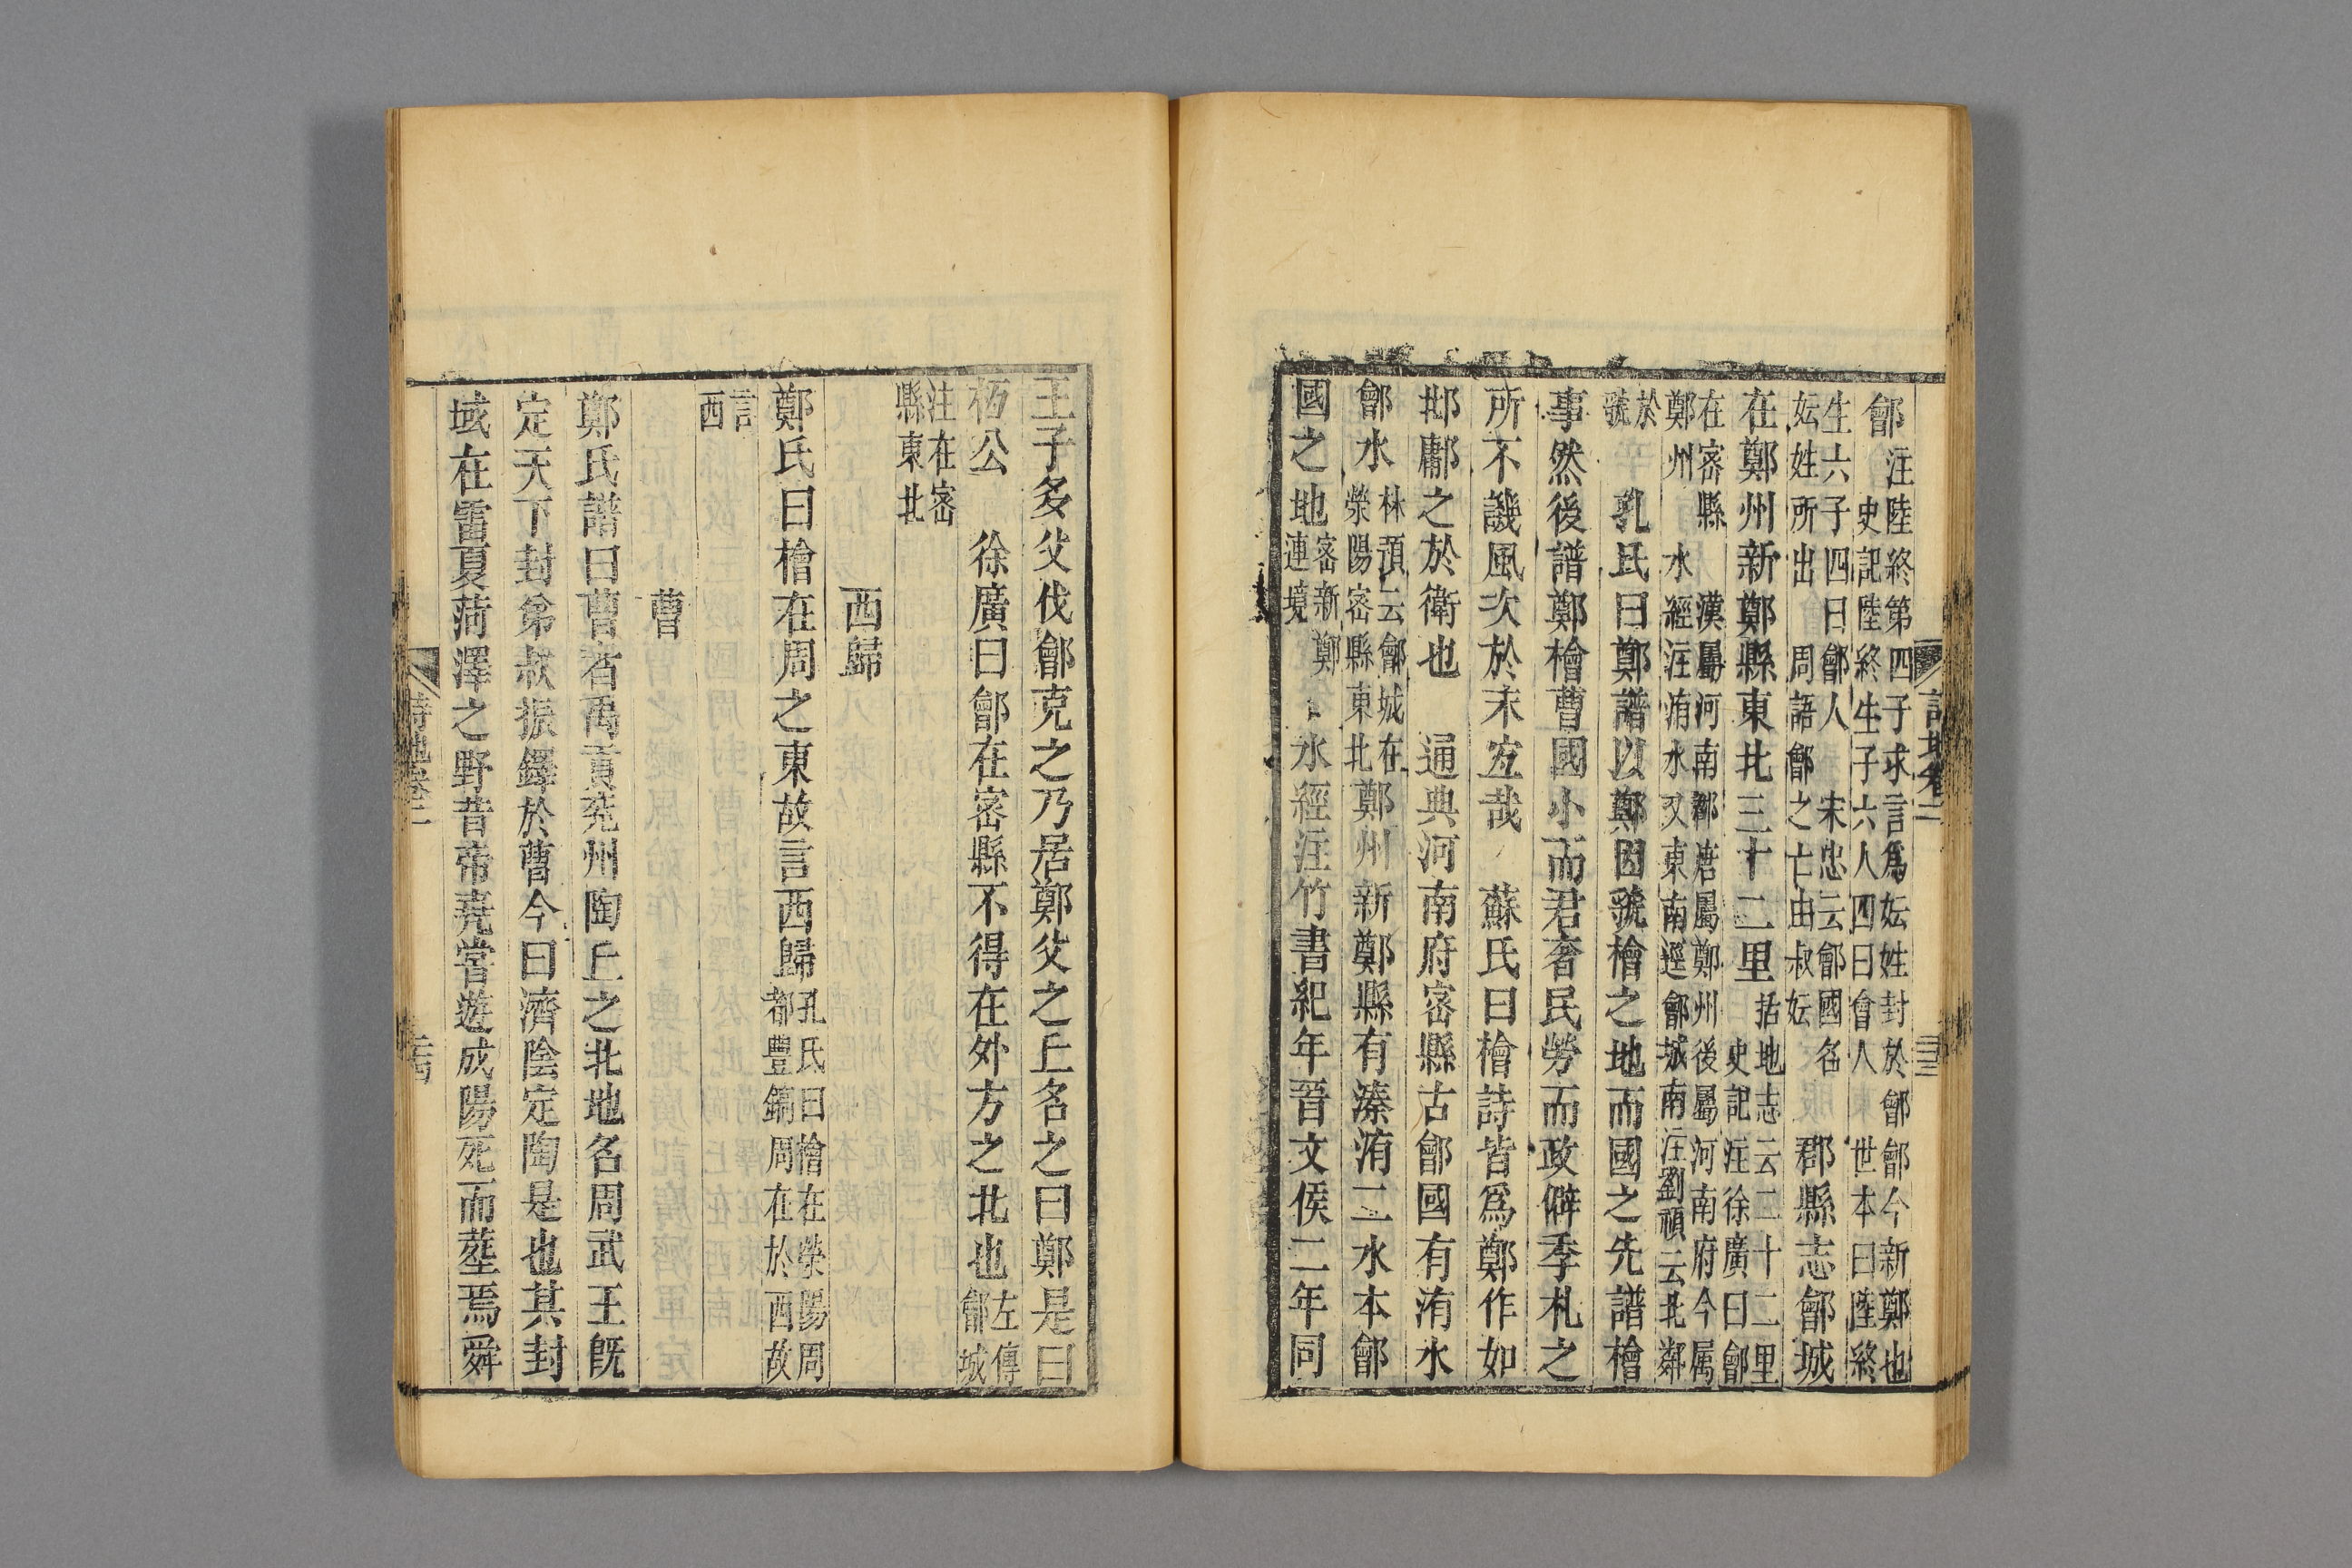 鄶注陸終第四子求言爲妘姓封於鄶鄶今新鄭也史記陸終生子六人四曰會人 世本曰陸終
生六子四曰鄶人 宋忠云鄶國名妘姓所出 周語鄶之亡由叔妘 郡縣志鄶城
在鄭州新鄭縣東北三十二里括地志云二十二里史記注徐廣曰鄶
在密縣 漢屬河南郡唐屬鄭州後屬河南府今属鄭州 水經注洧水又東南逕鄶城南注劉禎云北鄰
於虢 孔氏曰鄭譜以鄭因虢檜之地而國之先譜檜
事然後譜鄭檜曹國小而君奢民勞而政僻季札之
所不譏風次於末宐哉 蘇氏曰檜詩皆爲鄭作如
邶鄘之於衛也 通典河南府密縣古鄶國有洧水
鄶水林預云鄶城在滎陽密縣東北鄭州新鄭縣有溱洧二水本鄶
國之地密新鄭連境 水經注竹書紀年晉文侯二年同
王子多父伐鄶克之乃居鄭父之丘名之曰鄭是曰
桓公 徐廣曰鄶在密縣不得在外方之北也左傳鄶城
注在密縣東北
西歸
鄭氏曰檜在周之東故言西歸孔氏曰檜在滎陽周都豐鎬周在於西故
言西
曹
鄭氏譜曰曹者禹貢兖州陶丘之北地名周武王旣
定天下封弟叔振鐸於曹今曰濟陰定陶是也其封
域在雷夏菏澤之野昔帝堯嘗遊成陽死而葬焉舜
詩地卷二